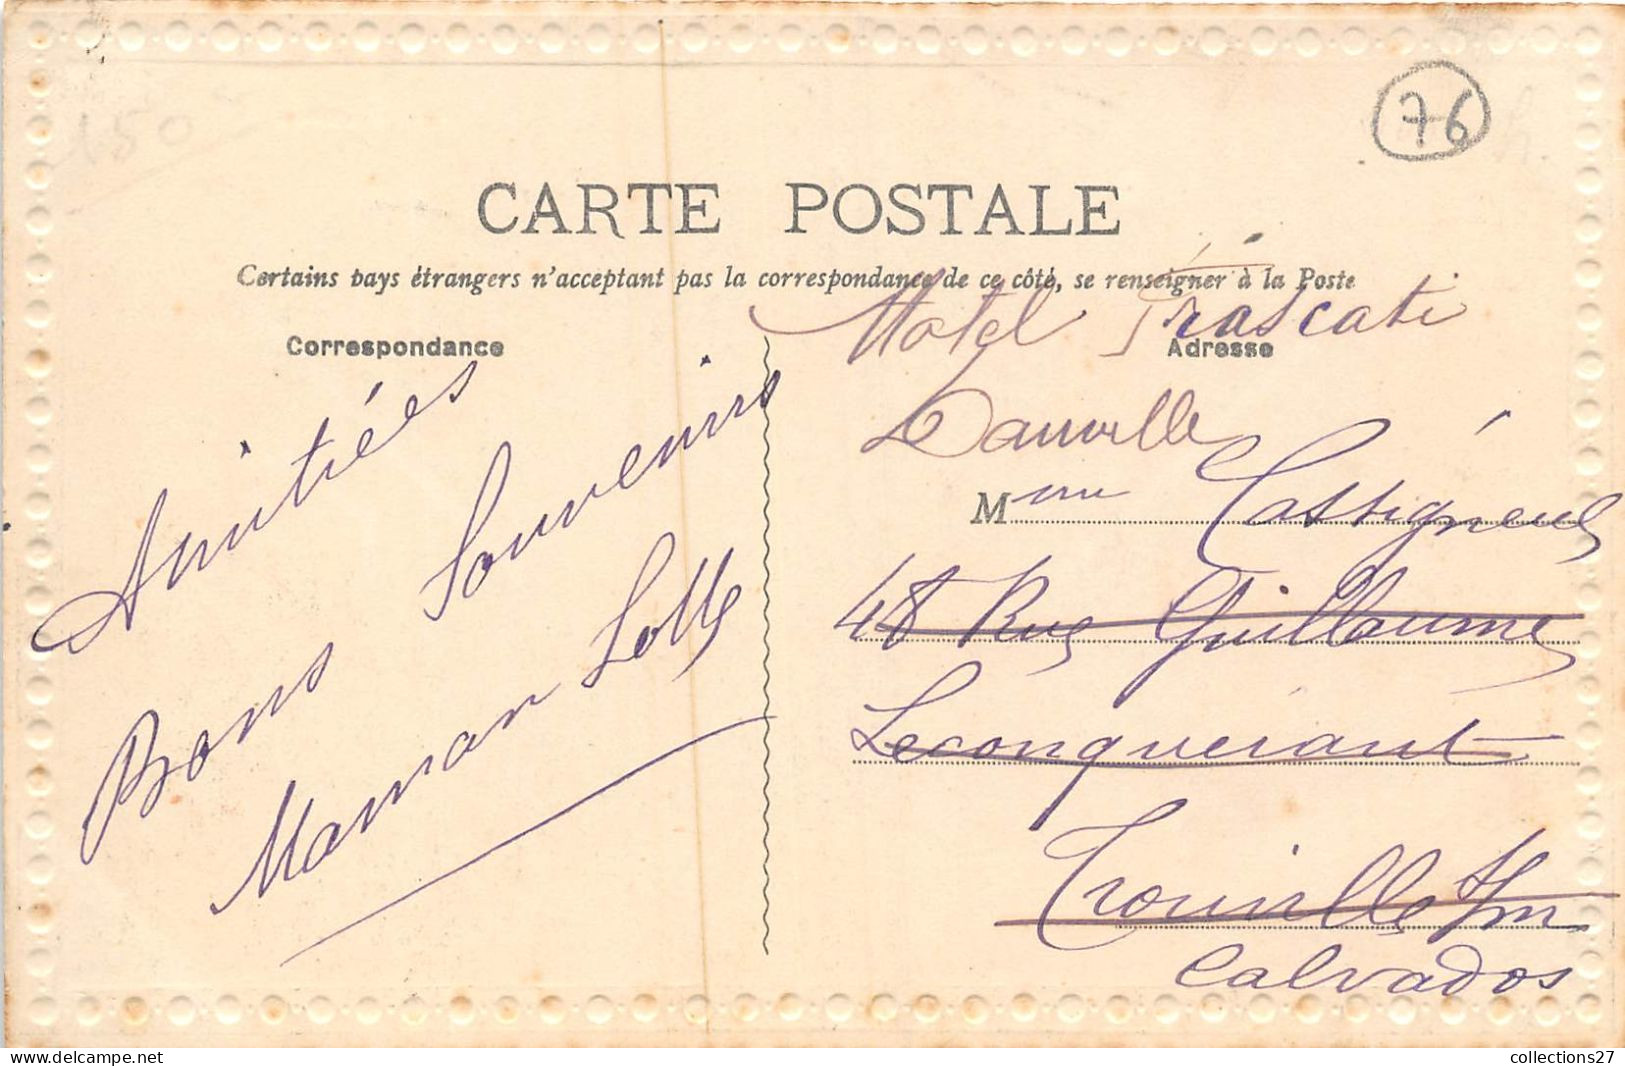 150
76
CARTE POSTALE
Certains pays étrangers n'acceptant pas la correspondance de ce côté, se renseigner à la Poste
Correspondance
Adresse
Amitiées
Bons Souvenirs
Maman Lolle
Hotel Frascati
Mme Cassigneul
48 Rue Guillaume
Leconquerant
Trouville s/m
Calvados
collections27